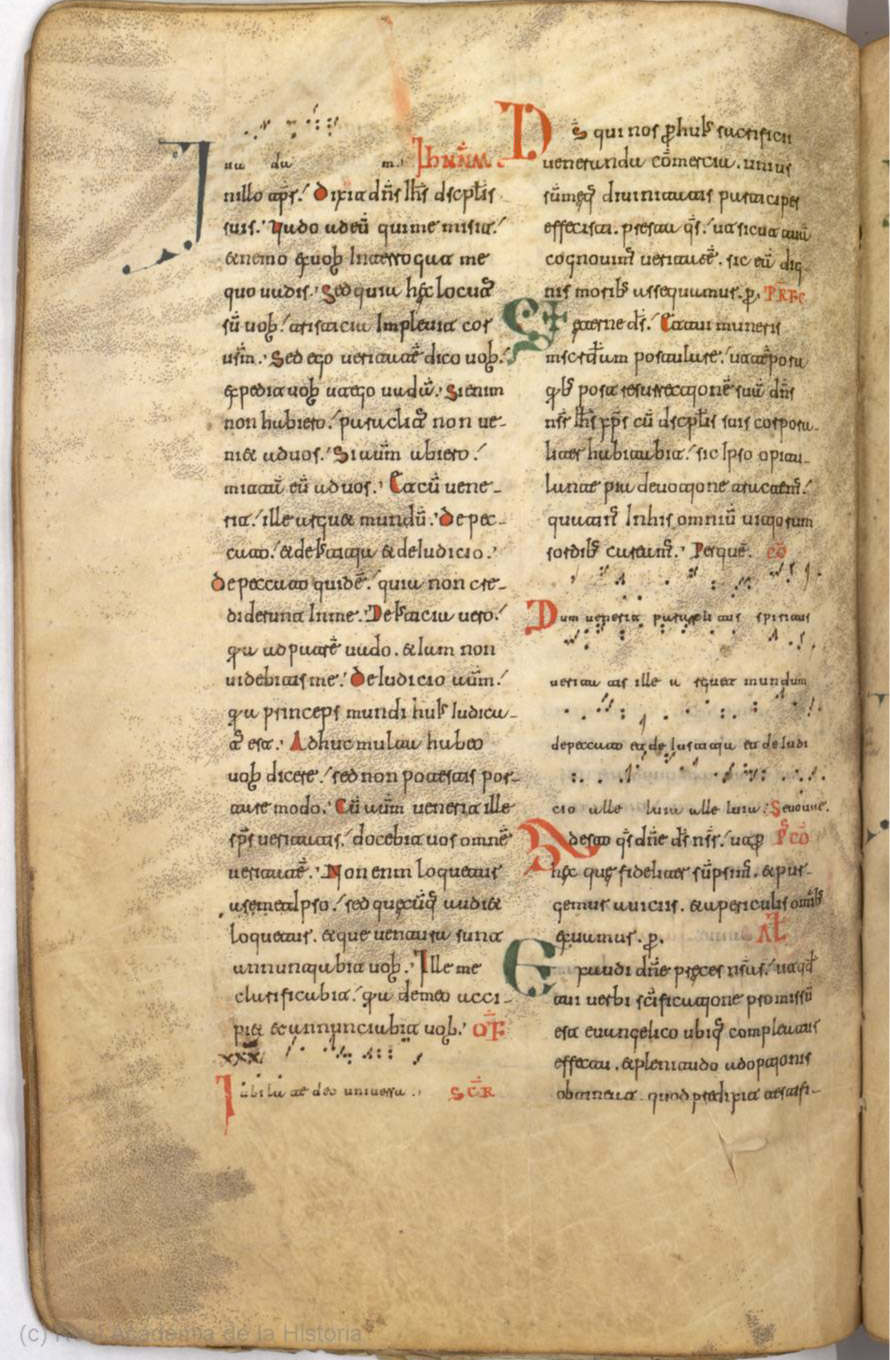 ua du m.' IhNNM.
In illo tp̄s.' Dixit dn̄s Ih̄s dscpl̄is
suis.' Uado ad eū qui me misit.'
& nemo ex uob̄ Interrogat me
quo uadis.' Sed quia hęc locut̄
sū uob̄.' tristitia Impleuit cor
usm̄.' Sed ego ueritatē dico uob̄.'
expedit uob̄ ut ego uadā.' Si enim
non habiero.' paraclit̄ non ue-
ni& ad uos.' Si autm̄ abiero.'
mittā eū ad uos.' Et cū uene-
rit.' ille arguet mundū.' De pec-
cato. & de Iustitia & de Iudicio.'
De peccato quidē.' quia non cre-
diderunt In me.' De Iustitia uero.'
qa ad patrē uado. & Iam non
uidebitis me.' De Iudicio aūm.'
qa princeps mundi hui' Iudica-
t̄ est.' Adhuc multa habeo
uob̄ dicere.' sed non potestis por-
tare modo.' Cū aūm uenerit ille
sp̄s ueritatis.' docebit uos omnē
ueritatē.' Non enim loquetur
a semetipso.' sed quęcūq audi&
loquetur. & que uentura sunt
annuntiabit uob̄.' Ille me
clarificabit.' qa de meo acci-
pi& et annunciabit uob̄.' OF̄
xxx
Iubilate deo uniuersa .. SCR̄
Ds̄ qui nos p hui' sacrificii
ueneranda cōmercia. unius
sūmęq diuinitatis participes
effecisti. presta qs̄.' ut sicut tuā
cognouim' ueritatē. sic eā dig-
nis morib' assequamur. p. PRFC
etterne ds̄.' Et tui muneris
miscrd̄iam postulare.' ut tēpora
qb' post resurrectionē suā dn̄s
nsr̄ Ih̄s xp̄s cū dscpl̄is suis corpora-
liter habitabit.' sic Ipso opitu-
lante pia deuotione tractem'.'
quatin' In his omniū uitiorum
sordib' careamus.' Per quē. cō
Dum uenerit paraclitus spiritus
ueritatis ille arguet mundum
de peccato et de Iustitia et de Iudi
cio alle luia alle luia.' Seuouae.
Adesto qs̄ dn̄e ds̄ nsr̄.' ut p P̄cō
hęc quę fideliter sūpsim'. & pur-
gemur a uiciis. & a periculis omib'
exuamur. p. AL̄
Exaudi dn̄e pręces nsās.' ut qd̄
tui uerbi scīficatione promissū
est euangelico ubiq compleatur
effectu. & plenitudo adoptionis
obtineat. quod predixit testifi-
(c) Real Academia de la Historia